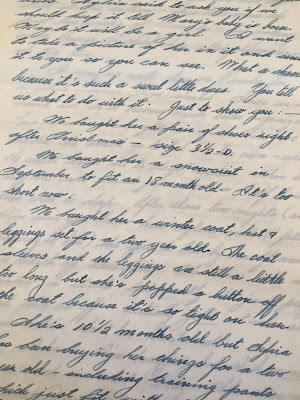 said to ask you if we
should keep it till Marj's baby is born.
Maybe it will be a girl. I want
to take a picture of her in it and send
it to you so you can see. What a shame
because it's such a sweet little dress. You tell
us what to do with it. Just to show you: —
We bought her a pair of shoes right
after Christmas — size 3½-D.
We bought her a snowsuit in
September to fit an 18 month old. It's too
short now.
We bought her a winter coat, hat &
leggings set for a two year old. The coat
sleeves and the leggings are still a little
too long but she's popped a button off
the coat because it's so tight on her.
She's 10 1/2 months old but
has been buying her things for a two
year old — including training pants
which just fit